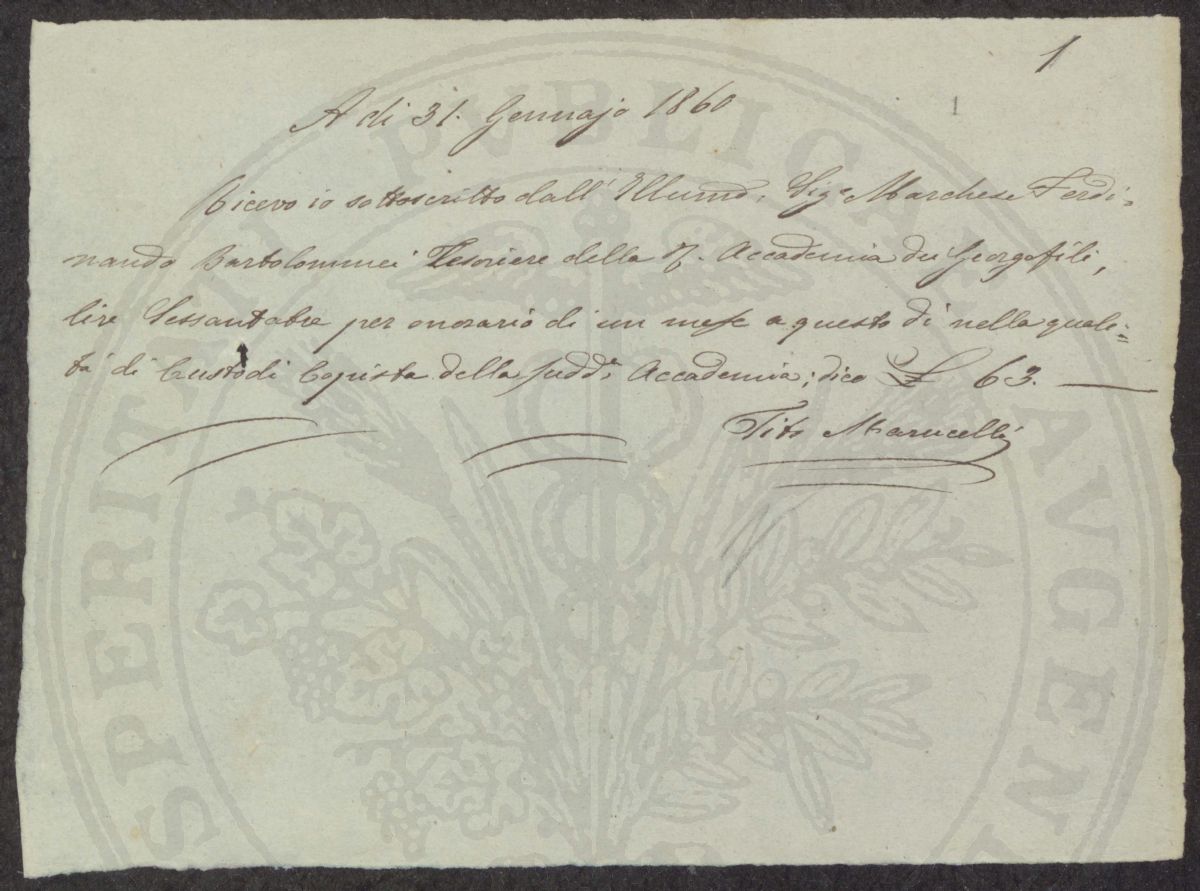 1
A di 31. Gennajo 1860
1
Ricevo io sottoscritto dall' Illumo. Sige. Marchese Ferdi-
nando Bartolommei Tesoriere della R. Accademia dei Georgofili,
lire Sessantatre per onorario di un mese a questo dì nella quali=
tà di Custode Copista della sudda. Accademia; dico £ 63.
Tito Marucelli
PROSPERITATI PVBLICAE AVGENDAE